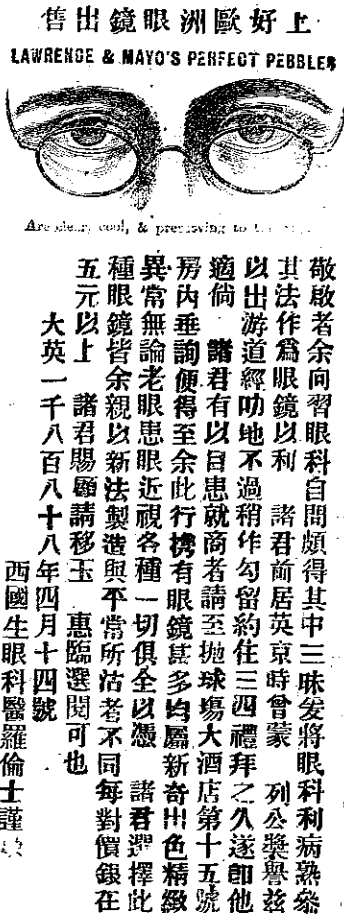 上好歐洲眼鏡出售
LAWRENCE & MAYO'S PERFECT PEBBLES
Are clear, cool, & preserving to the
敬啟者余向習眼科自問頗得其中三昧爰將眼科利病熟參
其法作爲眼鏡以利 諸君前居英京時曾蒙 列公獎譽茲
以出游道經叻地不過稍作勾留約住三四禮拜之久遂卽他
適倘 諸君有以目患就商者請至拋球塲大酒店第十五號
房內垂詢便得至余此行携有眼鏡甚多均屬新奇出色精緻
異常無論老眼患眼近視各種一切俱全以憑 諸君選擇此
種眼鏡皆余親以新法製造與平常所沽者不同每對價銀在
五元以上 諸君賜顧請移玉 惠臨選閱可也
大英一千八百八十八年四月十四號
西國生眼科醫羅倫士謹